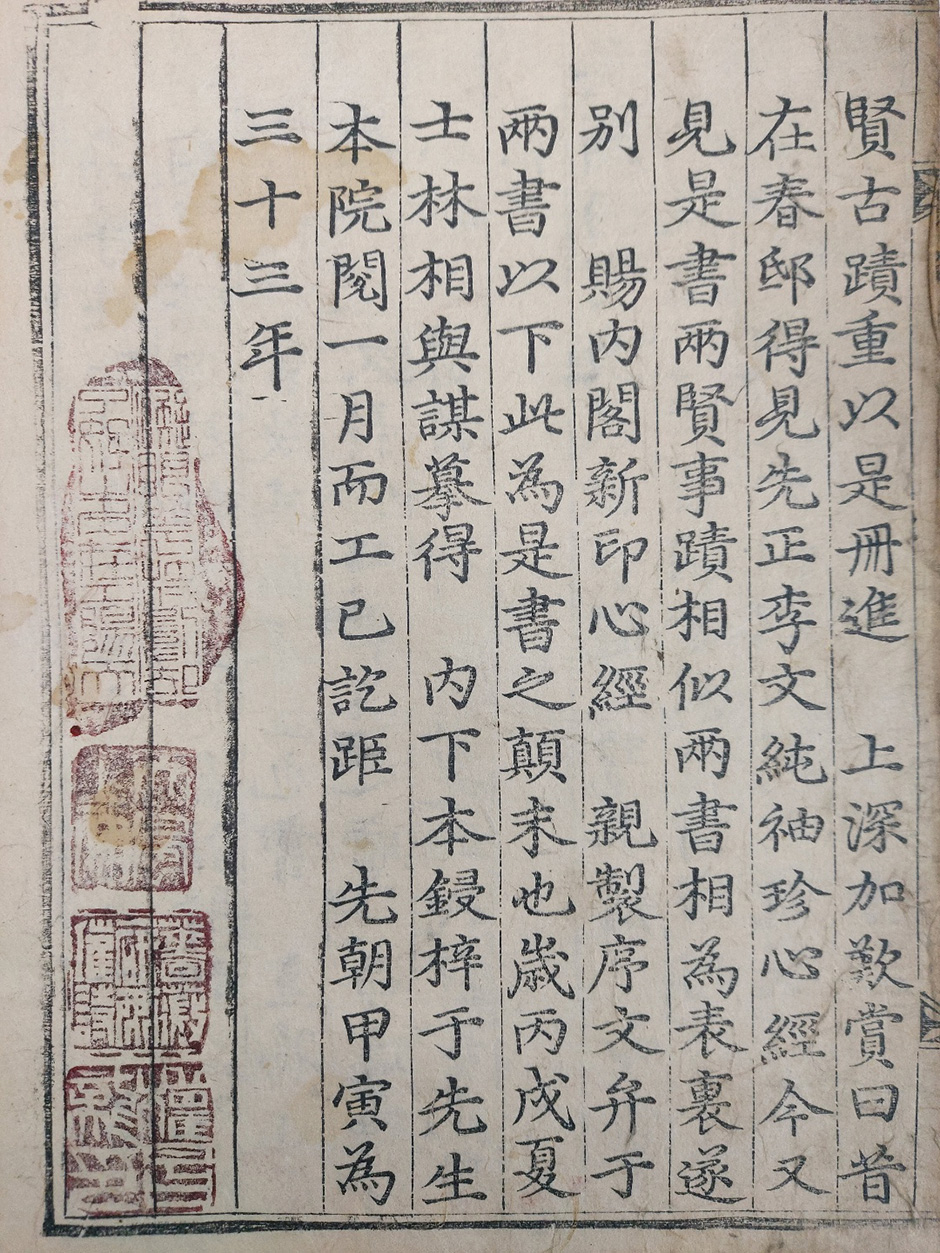 賢古蹟重以是冊進　上深加歎賞曰昔
在春邸得見先正李文純袖珍心經今又
見是書兩賢事蹟相似兩書相為表裏遂
別　賜內閣新印心經　親製序文弁于
兩書以下此為是書之顛末也歲丙戌夏
士林相與謀摹得　內下本鋟梓于先生
本院閱一月而工已訖距　先朝甲寅為
三十三年